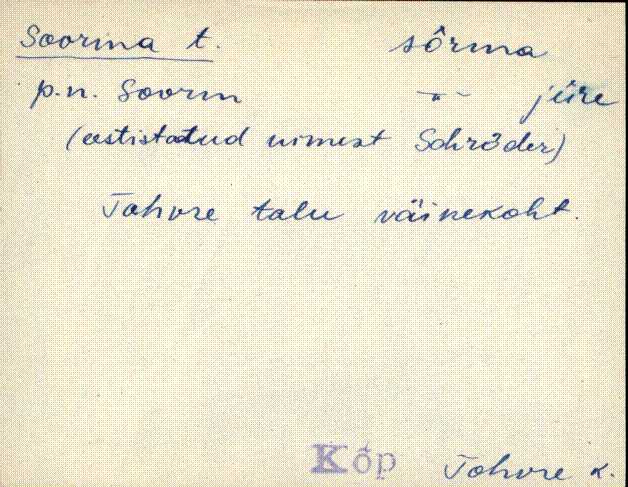 Soorma t. sôrma
p.n. Soorm -"- jüre
(eestistatud nimest Schröder)
Tohvre talu väinekoht.
Kõp Tohvre k.